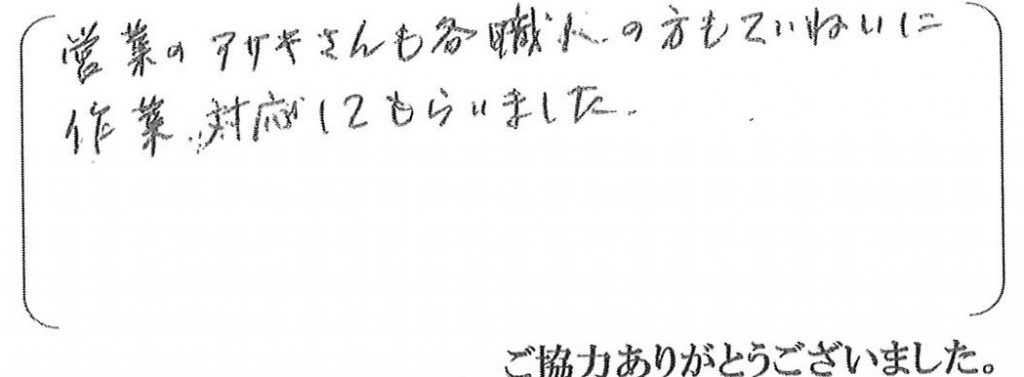 営業のアサキさんも各職人の方もていねいに
作業、対応してもらいました.
ご協力ありがとうございました。